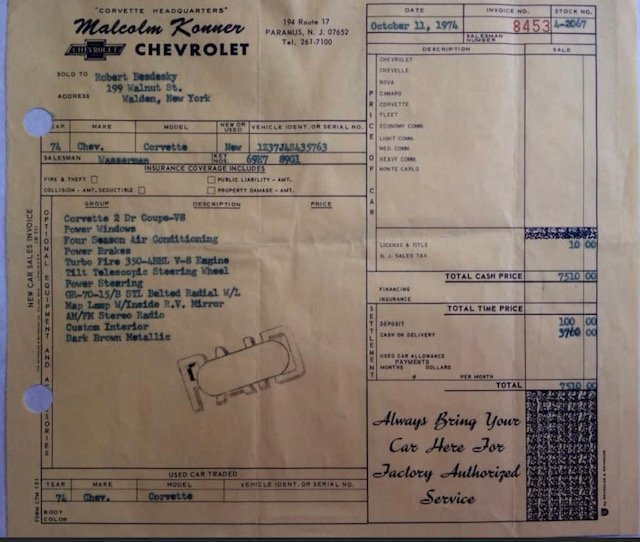 "CORVETTE HEADQUARTERS"
Malcolm Konner
CHEVROLET
CHEVROLET
194 Route 17
PARAMUS, N. J. 07652
Tel. 261-7100
DATE INVOICE NO. STOCK NO.
October 11, 1974 8453 4-2067
SALESMAN NUMBER
SOLD TO Robert Besdesky
ADDRESS 199 Walnut St.
Walden, New York
DESCRIPTION SALE
PRICE OF CAR
CHEVROLET
CHEVELLE
NOVA
CAMARO
CORVETTE
FLEET
ECONOMY COMM.
LIGHT COMM.
MED. COMM.
HEAVY COMM.
MONTE CARLO
YEAR MAKE MODEL NEW OR USED VEHICLE IDENT. OR SERIAL NO.
74 Chev. Corvette New 1Z37J4S435763
SALESMAN Wasserman KEY NOS. 69E7 89G1
INSURANCE COVERAGE INCLUDES
FIRE & THEFT PUBLIC LIABILITY - AMT.
COLLISION - AMT. DEDUCTIBLE PROPERTY DAMAGE - AMT.
GROUP DESCRIPTION PRICE
NEW CAR SALES INVOICE
OPTIONAL EQUIPMENT AND ACCESSORIES
Corvette 2 Dr Coupe-V8
Power Windows
Four Season Air Conditioning
Power Brakes
Turbo Fire 350-4BBL V-8 Engine
Tilt Telescopic Steering Wheel
Power Steering
GR-70-15/B STL Belted Radial W/L
Map Lamp W/Inside R.V. Mirror
AM/FM Stereo Radio
Custom Interior
Dark Brown Metallic
LICENSE & TITLE 10 00
N. J. SALES TAX
TOTAL CASH PRICE 7510 00
FINANCING
INSURANCE
TOTAL TIME PRICE
SETTLEMENT
DEPOSIT 100 00
CASH ON DELIVERY 00
USED CAR ALLOWANCE
PAYMENTS
MONTHS DOLLARS
@ PER MONTH
TOTAL 7510 00
Always Bring Your
Car Here For
Factory Authorized
Service
USED CAR TRADED
YEAR MAKE MODEL VEHICLE IDENT. OR SERIAL NO.
74 Chev. Corvette
BODY COLOR
FORM CTM 131